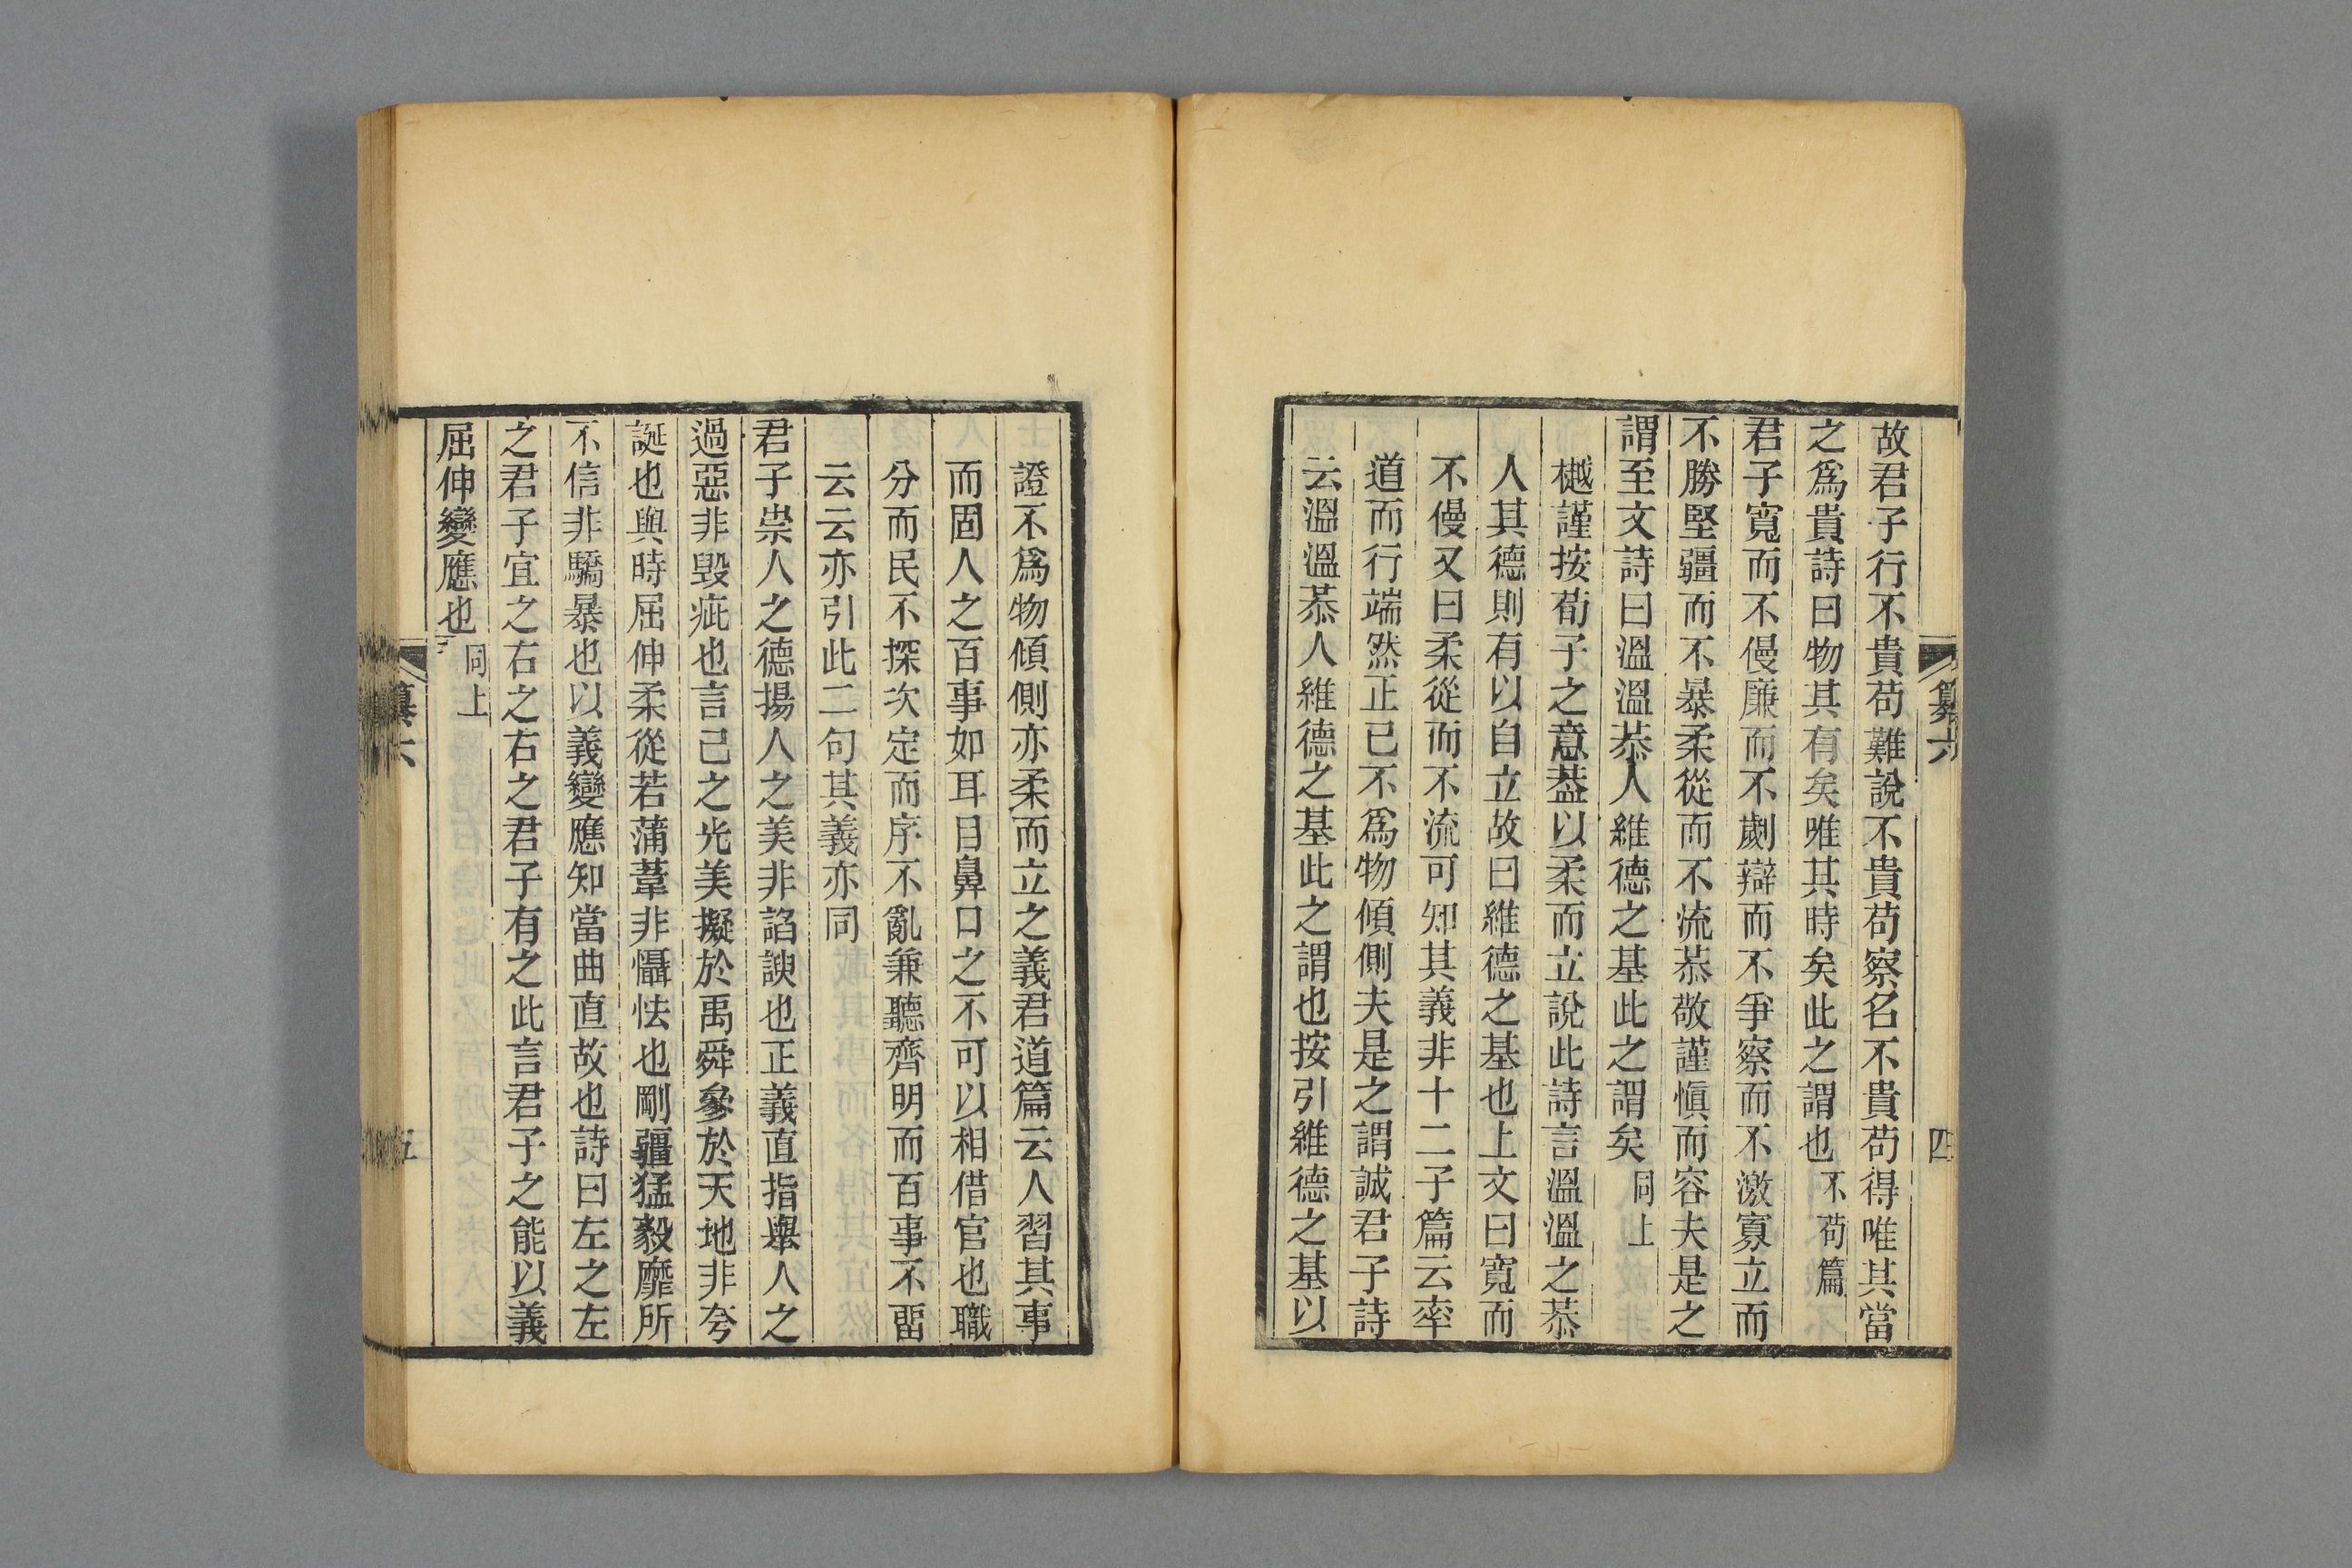 纂六
四
故君子行不貴苟難說不貴苟察名不貴苟得唯其當
之爲貴詩曰物其有矣唯其時矣此之謂也不苟篇
君子寬而不僈廉而不劌辯而不爭察而不激寡立而
不勝堅彊而不暴柔從而不流恭敬謹愼而容夫是之
謂至文詩曰溫溫恭人維德之基此之謂矣同上
樾謹按荀子之意葢以柔而立說此詩言溫溫之恭
人其德則有以自立故曰維德之基也上文曰寬而
不僈又曰柔從而不流可知其義非十二子篇云率
道而行端然正已不爲物傾側夫是之謂誠君子詩
云溫溫恭人維德之基此之謂也按引維德之基以
證不爲物傾側亦柔而立之義君道篇云人習其事
而固人之百事如耳目鼻口之不可以相借官也職
分而民不探次定而序不亂兼聽齊明而百事不畱
云云亦引此二句其義亦同
君子崇人之德揚人之美非諂諛也正義直指舉人之
過惡非毀疵也言己之光美擬於禹舜參於天地非夸
誕也與時屈伸柔從若蒲葦非懾怯也剛彊猛毅靡所
不信非驕暴也以義變應知當曲直故也詩曰左之左
之君子宜之右之右之君子有之此言君子之能以義
屈伸變應也同上
纂六
五